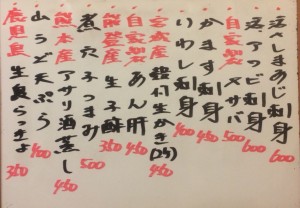 活〆しまあじ刺身 600
活アワビ刺身 600
自家製 〆サバ 500
かます刺身 450
いわし刺身 400
宮城産 殻付生かき(2ケ) 450
自家製 あん肝 450
能登産 生子酢 350
煮穴子つまみ 500
熊本産 アサリ酒蒸し 450
山うど天ぷら 400
鹿児島 生島らっきょ 350